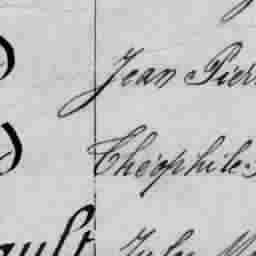 Jean Pier
Théophile
ault Jules M